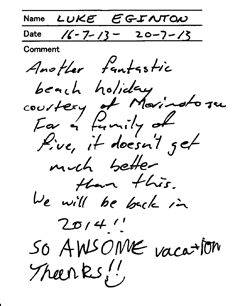 Name LUKE EGINTON
Date 16-7-13 - 20-7-13
Comment
Another fantastic
beach holiday
courtesy of
For a family of
five, it doesn't get
much better
than this.
We will be back in
2014!!
SO AWSOME vacation
Thanks!!